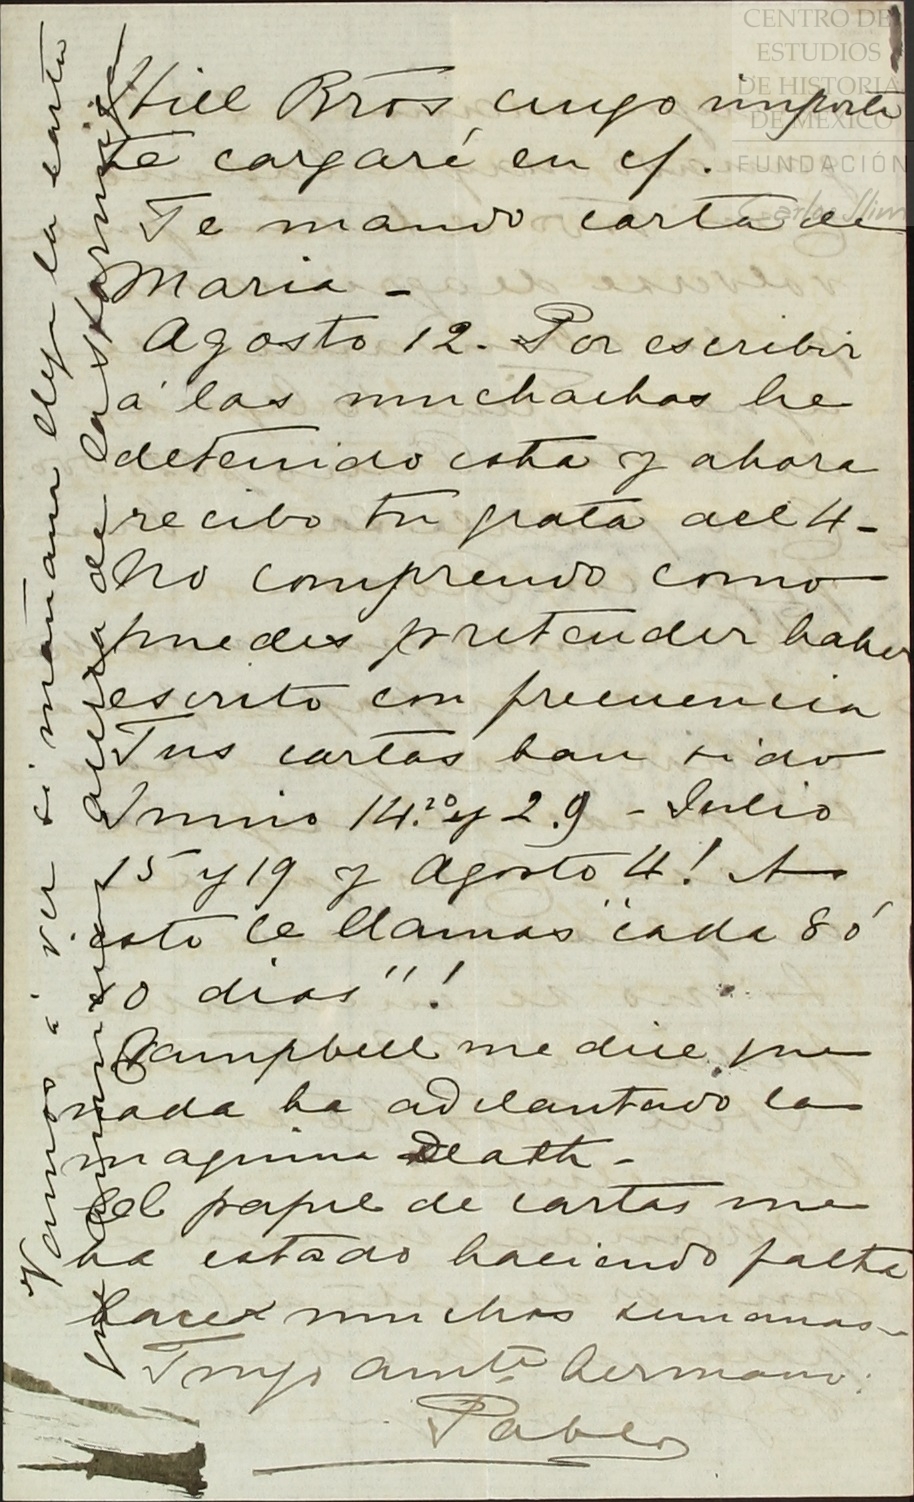 CENTRO DE
ESTUDIOS
DE HISTORIA
DE MÉXICO
FUNDACIÓN
Carlos Slim
Hill Bros cuyo importe
te cargaré en c/.
Te mando carta de
Maria -
Agosto 12. Por escribir
á las muchachas he
detenido esta y ahora
recibo tu grata del 4-
No comprendo como
puedes pretender haber
escrito con frecuencia
Tus cartas han sido
Junio 14. 20 y 29 - Julio
15 y 19 y Agosto 4! A
esto le llamas "cada 8 ó
10 dias"!
Campbell me dice que
nada ha adelantado la
maquina Death -
El papel de cartas me
ha estado haciendo falta
hace muchas semanas-
Tuyo amte hermano.
Pablo
Vamos á ver si mañana llega la carta
que anuncias acerca de las